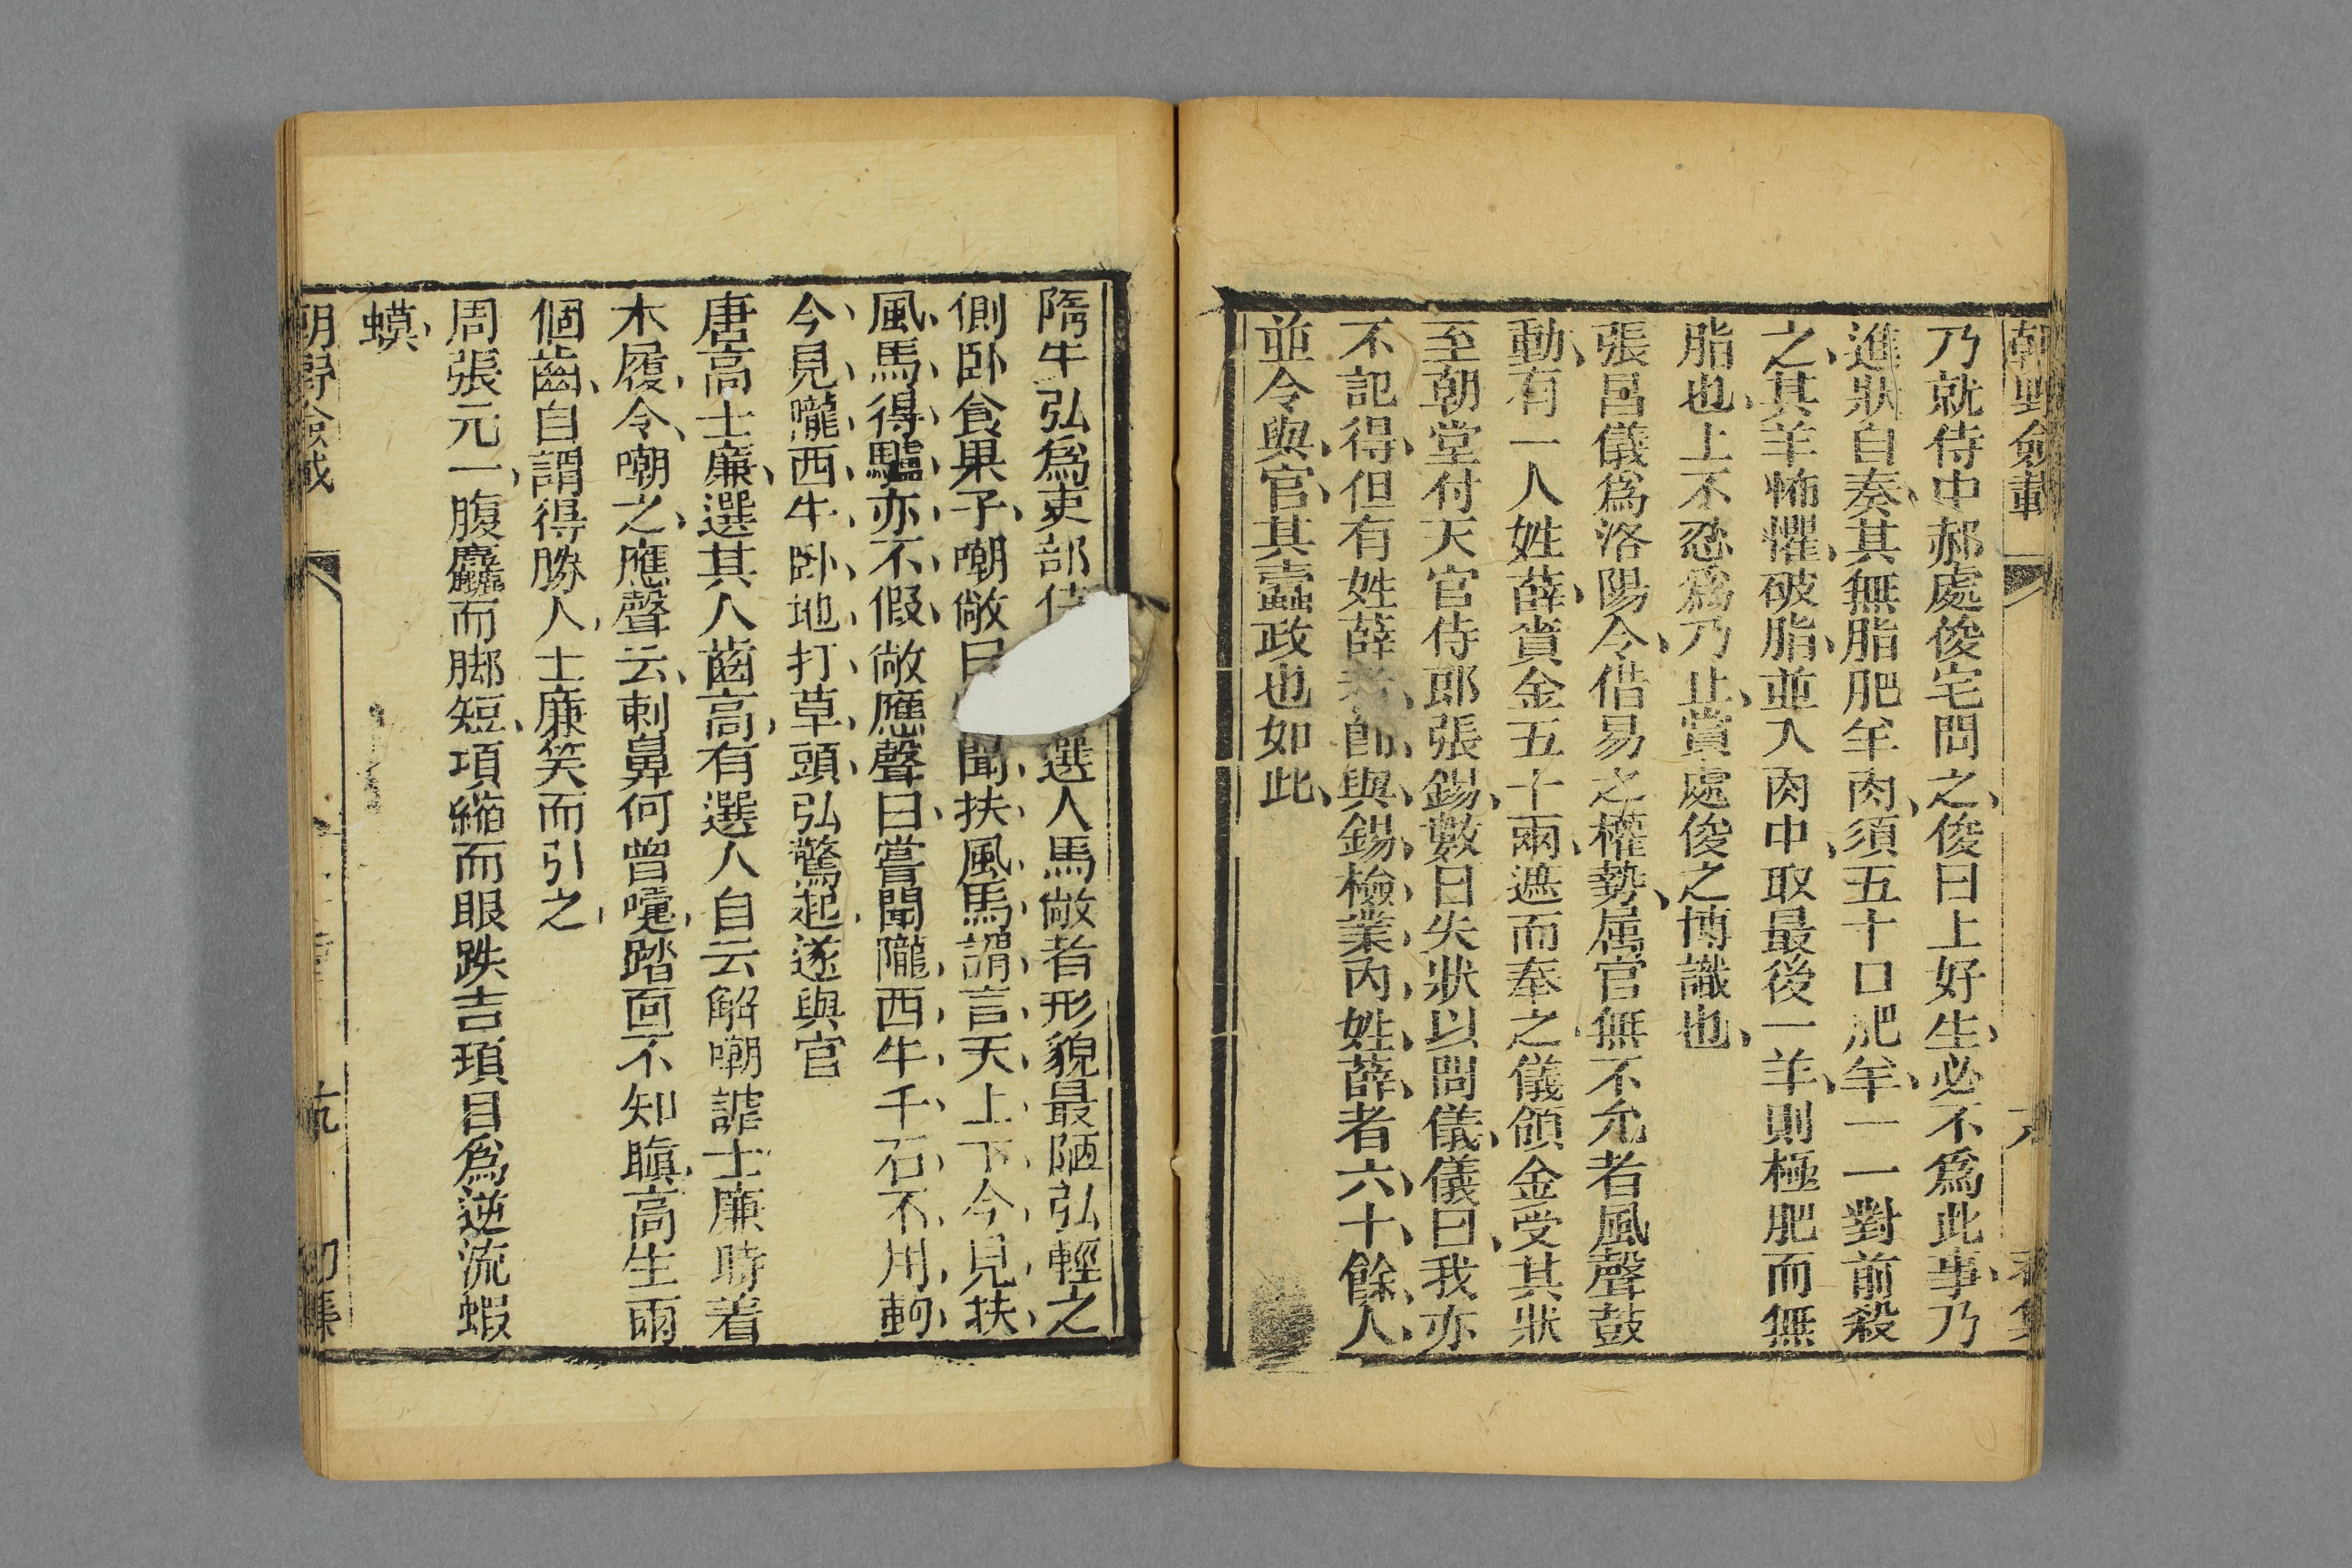 朝野僉載
乃就侍中郝處俊宅問之俊曰上好生必不爲此事乃
進狀自奏其無脂肥羊肉須五十口肥羊一一對前殺
之其羊怖懼破脂並入肉中取最後一羊則極肥而無
脂也上不忍爲乃止賞處俊之博識也
張昌儀爲洛陽令借易之權勢屬官無不允者風聲鼓
動有一人姓薛賫金五十兩遮而奉之儀領金受其狀
至朝堂付天官侍郎張錫數日失狀以問儀儀曰我亦
不記得但有姓薛者卽與錫檢業內姓薛者六十餘人
並令與官其蠧政也如此
隋牛弘爲吏部侍選人馬敞者形貌最陋弘輕之
側卧食果子嘲敞曰聞扶風馬謂言天上下今見扶
風馬得驢亦不假敞應聲曰嘗聞隴西牛千石不用軥
今見隴西牛卧地打草頭弘驚起遂與官
唐高士廉選其人齒高有選人自云解嘲謔士廉時着
木履令嘲之應聲云刺鼻何曾嚏踏面不知瞋高生兩
個齒自謂得勝人士廉笑而引之
周張元一腹麤而脚短項縮而眼跌吉頊目爲逆流蝦
蟆
朝野僉載